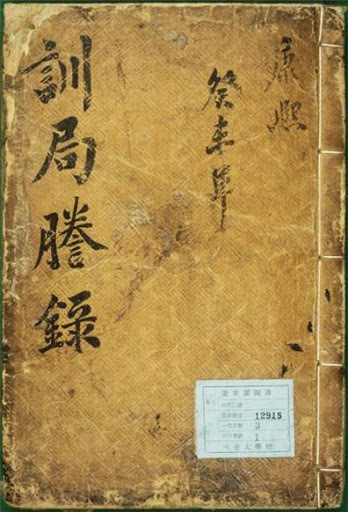 康熙
癸未年
訓局謄錄
奎章閣圖書
12915
3
1
서울大學校